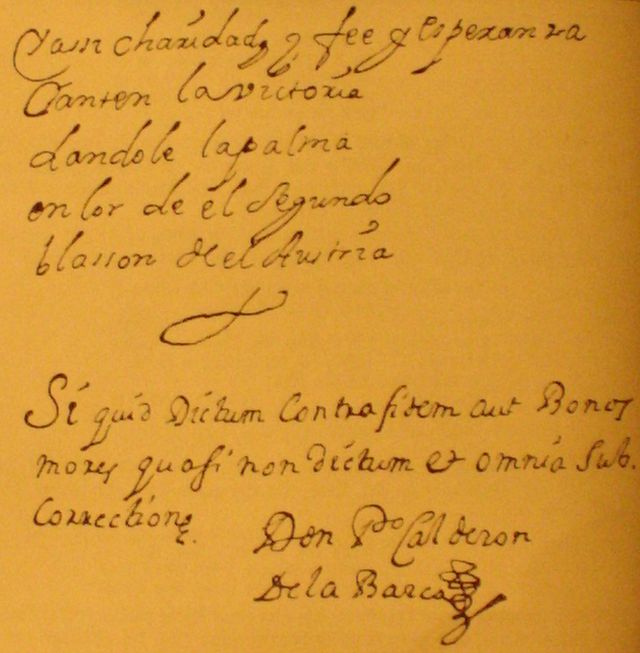 Yassi charidad, y fee y esperanza
Canten la victoria
dandole lapalma
en lor de el segundo
blasson de el Austria
Si quid Dictum Contra fidem aut Bonos
mores quasi non dictum et omnia Sub.
Correctione.
Don Pº Calderon
De la Barca